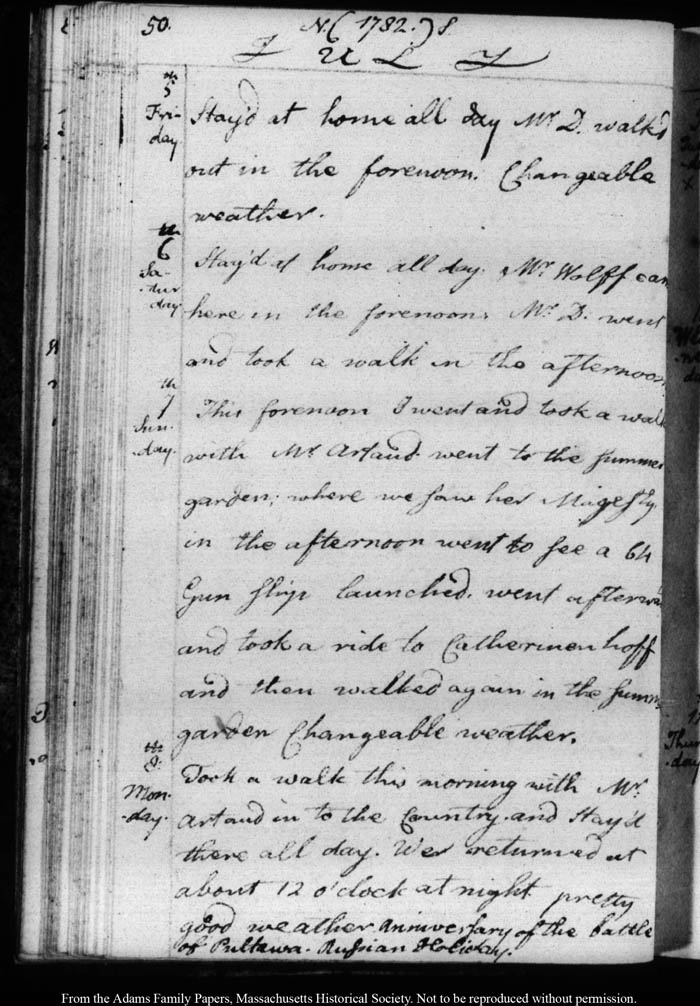 50. N. (1782.) S.
JULY
5th Friday Stay'd at home all day Mr. D. walk'd
out in the forenoon. Changeable
weather.
6th Saturday Stay'd at home all day. Mr. Wolff cam
here in the forenoon. Mr. D. went
and took a walk in the afternoon
7th Sunday. This forenoon I went and took a walk
with Mr. Artaud. went to the summer
garden; where we saw her Magesty.
in the afternoon went to see a 64
Gun ship launched. went afterwa
and took a ride to Catherinenhoff
and then walked again in the summ
garden Changeable weather.
8th Monday. Took a walk this morning with Mr.
Artaud in to the Country. and stay'd
there all day. We returned at
about 12 o'clock at night pretty
good weather Anniversary of the battle
of Pultawa. Russian Holiday.
From the Adams Family Papers, Massachusetts Historical Society. Not to be reproduced without permission.